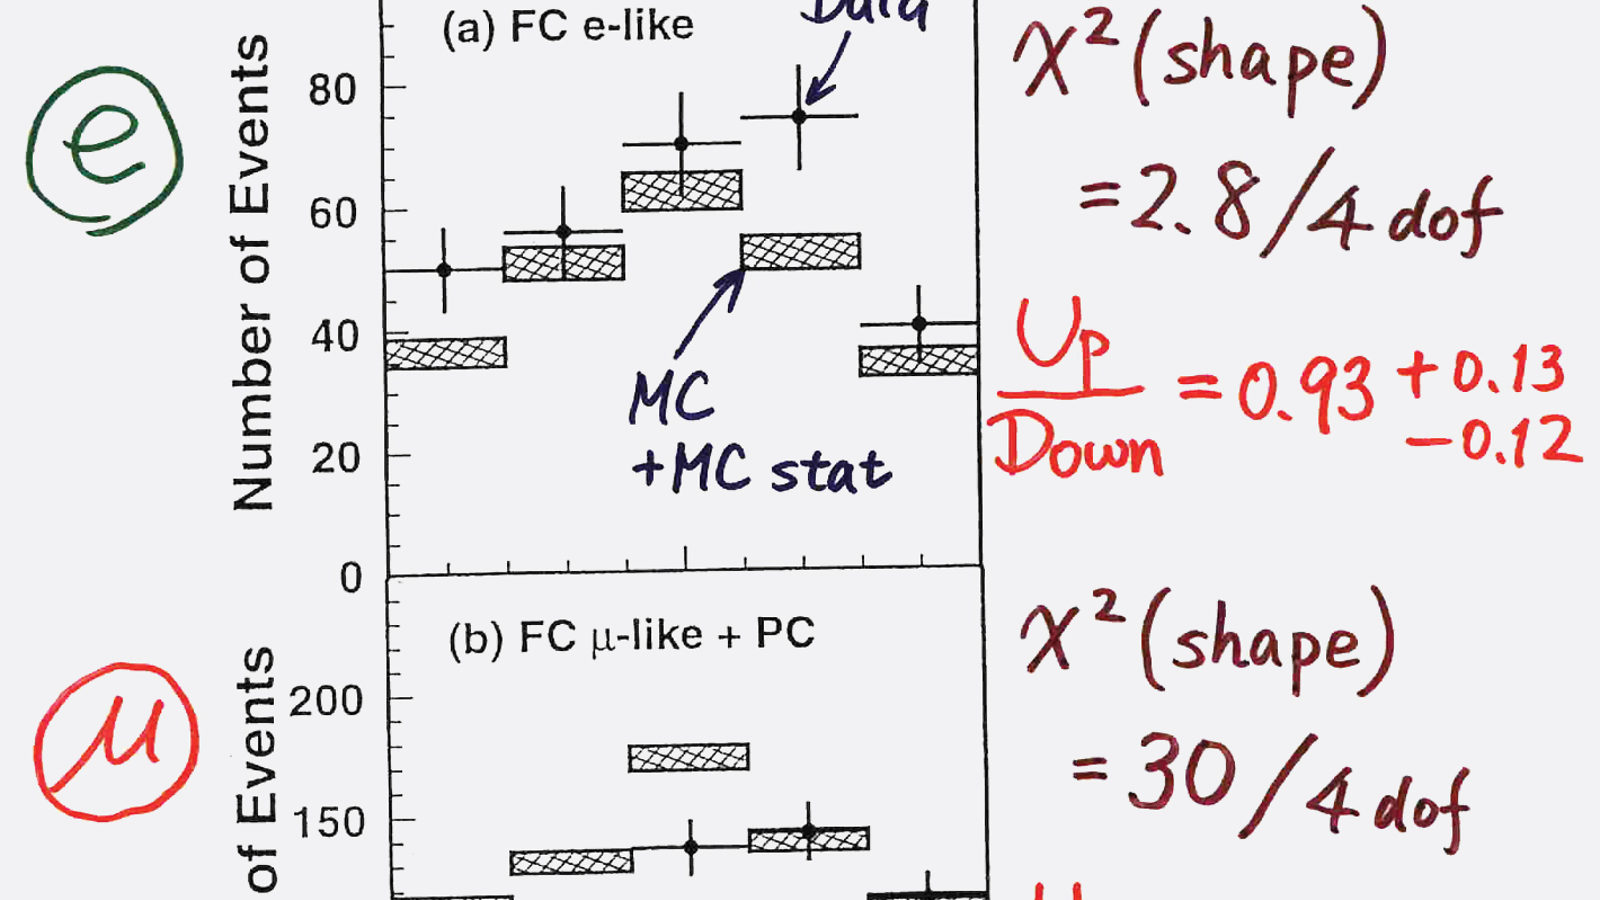 (a) FC e-like
Data
e
Number of Events
80
60
40
20
0
MC
+MC stat
χ² (shape)
= 2.8 / 4 dof
Up
Down
= 0.93 + 0.13
− 0.12
(b) FC μ-like + PC
μ
of Events
200
150
χ² (shape)
= 30 / 4 dof